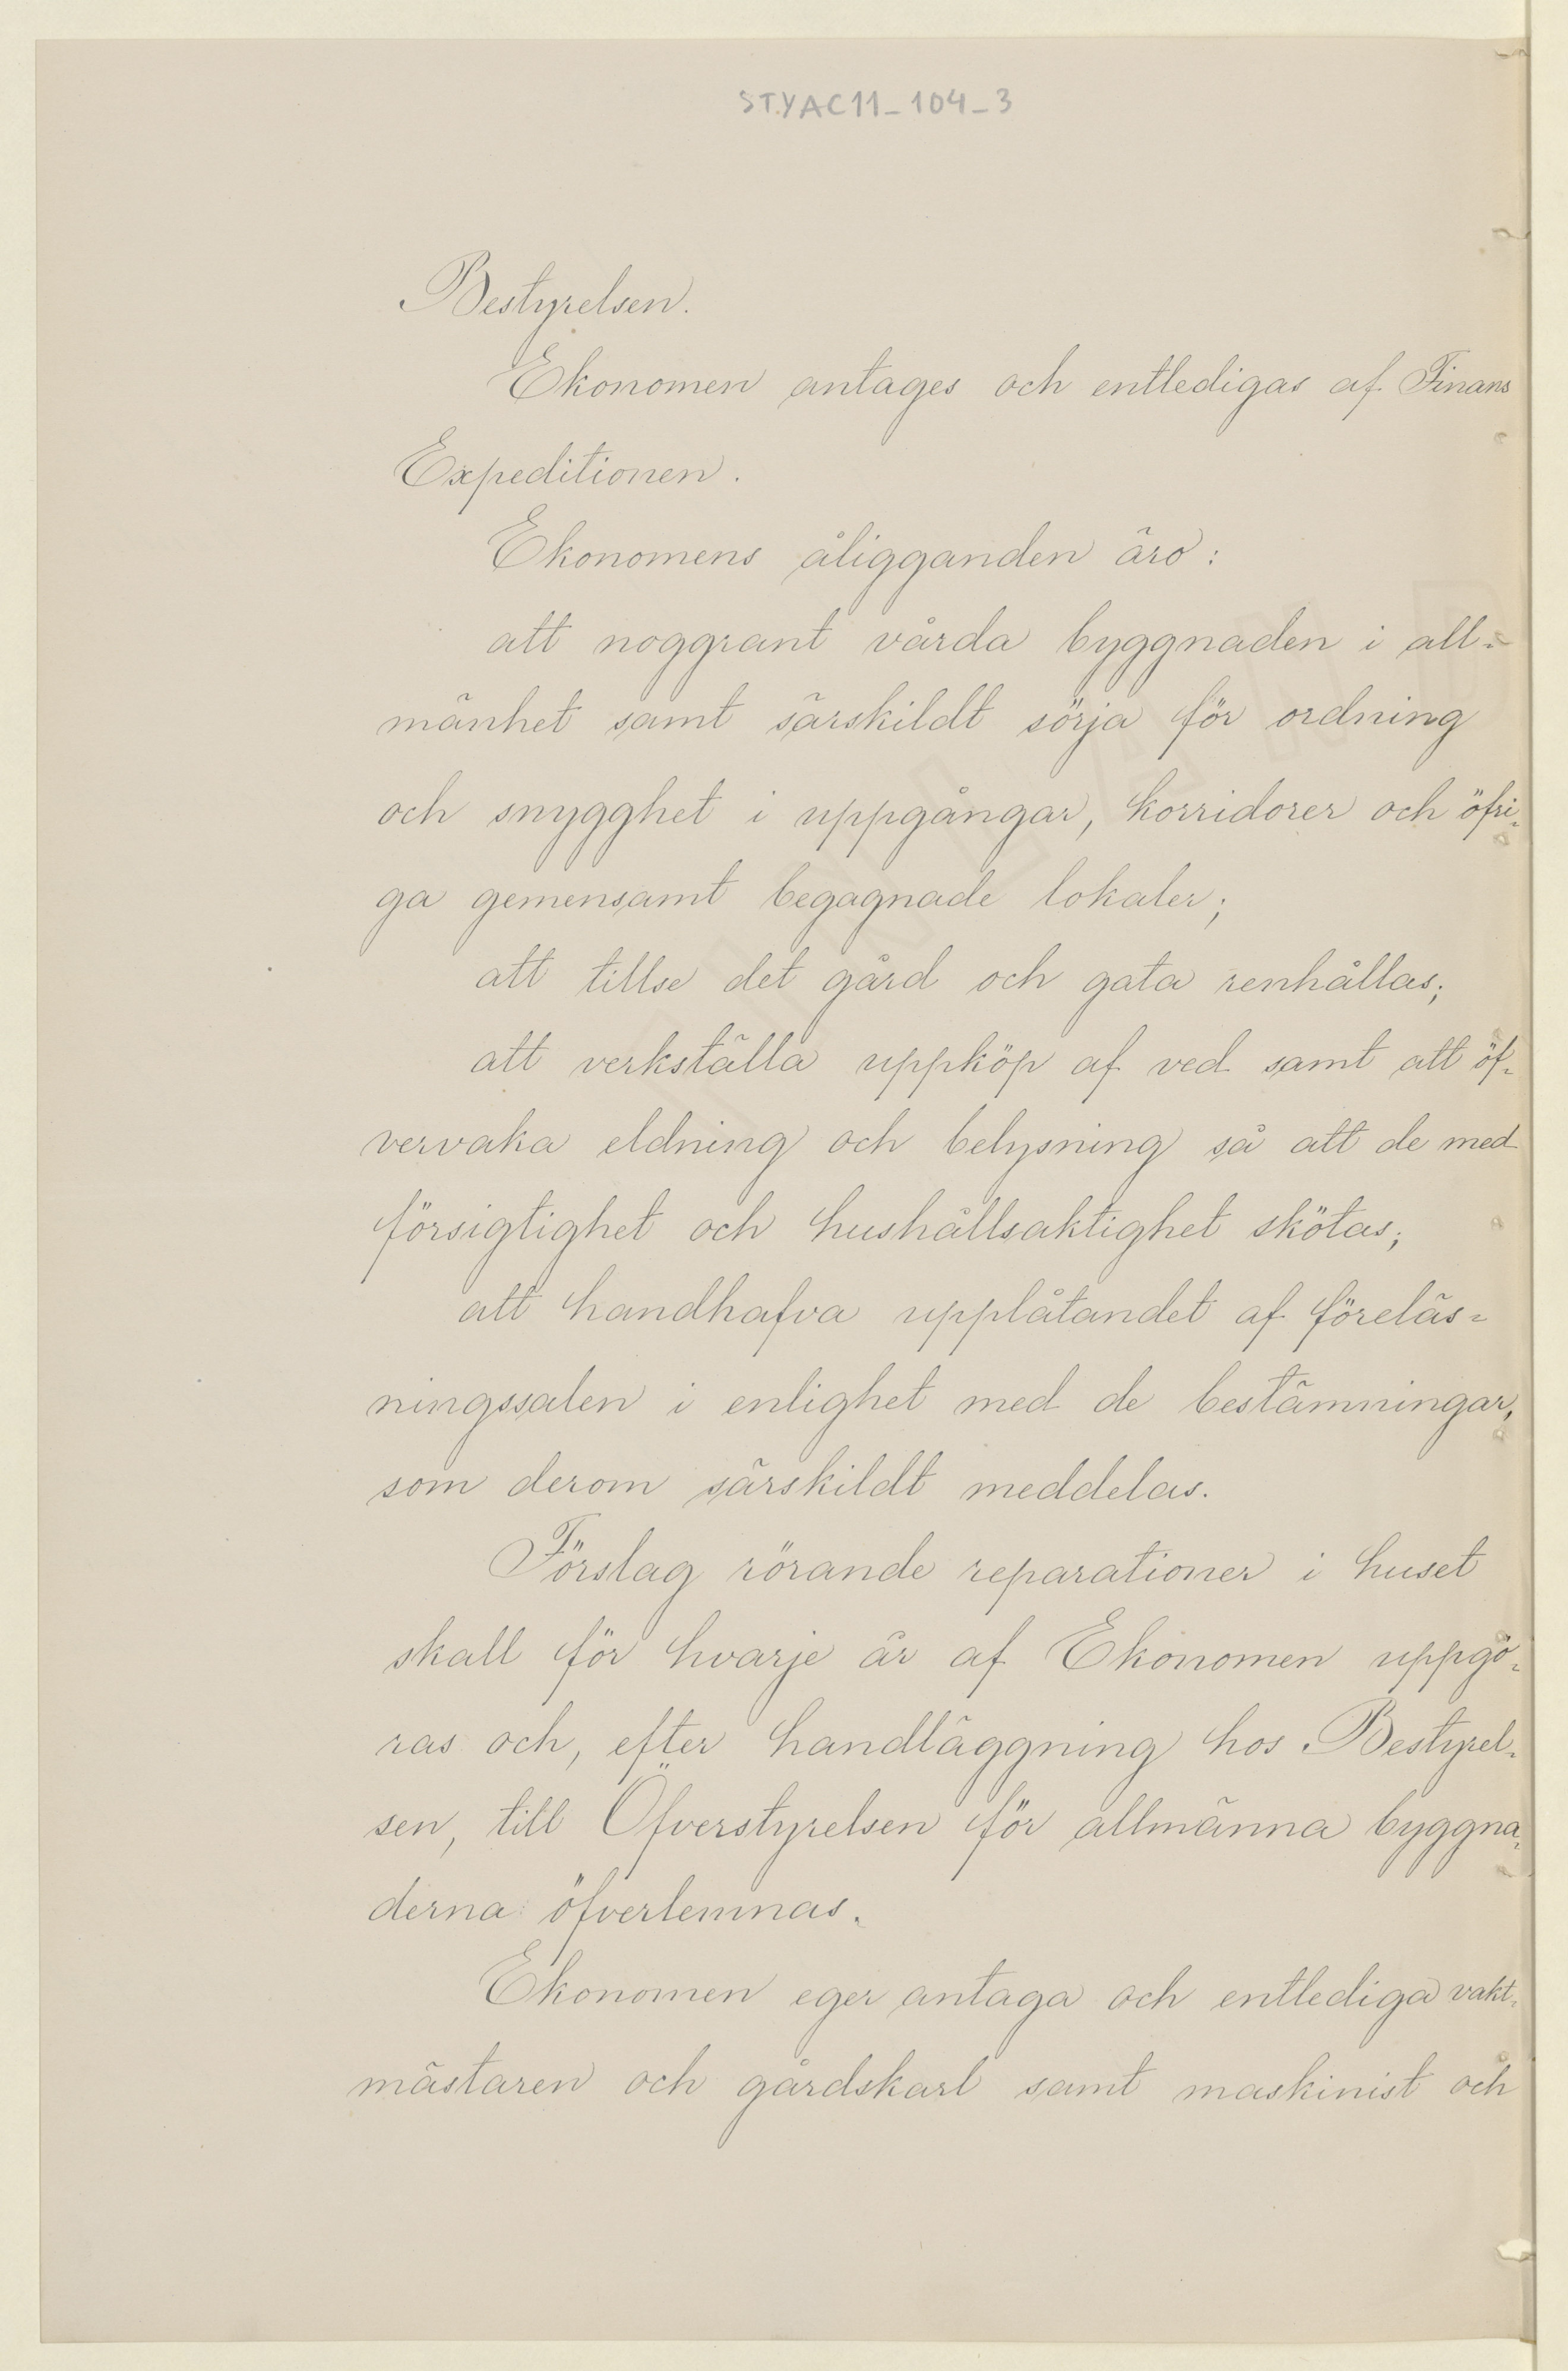 STYAC11_104_3
Bestyrelsen.
Ekonomen antages och entledigas af Finans
Expeditionen.
Ekonomens åligganden äro:
att noggrant vårda byggnaden i all=
mänhet samt särskildt sörja för ordning
och snygghet i uppgångar, korridorer och öfri=
ga gemensamt begagnade lokaler;
att tillse det gård och gata renhållas;
att verkställa uppköp af ved samt att öf=
vervaka eldning och belysning så att de med
försigtighet och hushållsaktighet skötas;
att handhafva upplåtandet af föreläs=
ningssalen i enlighet med de bestämningar,
som derom särskildt meddelas.
Förslag rörande reparationer i huset
skall för hvarje år af Ekonomen uppgö=
ras och, efter handläggning hos Bestyrel=
sen, till Öfverstyrelsen för allmänna byggna=
derna öfverlemnas.
Ekonomen eger antaga och entlediga vakt=
mästaren och gårdskarl samt maskinist och